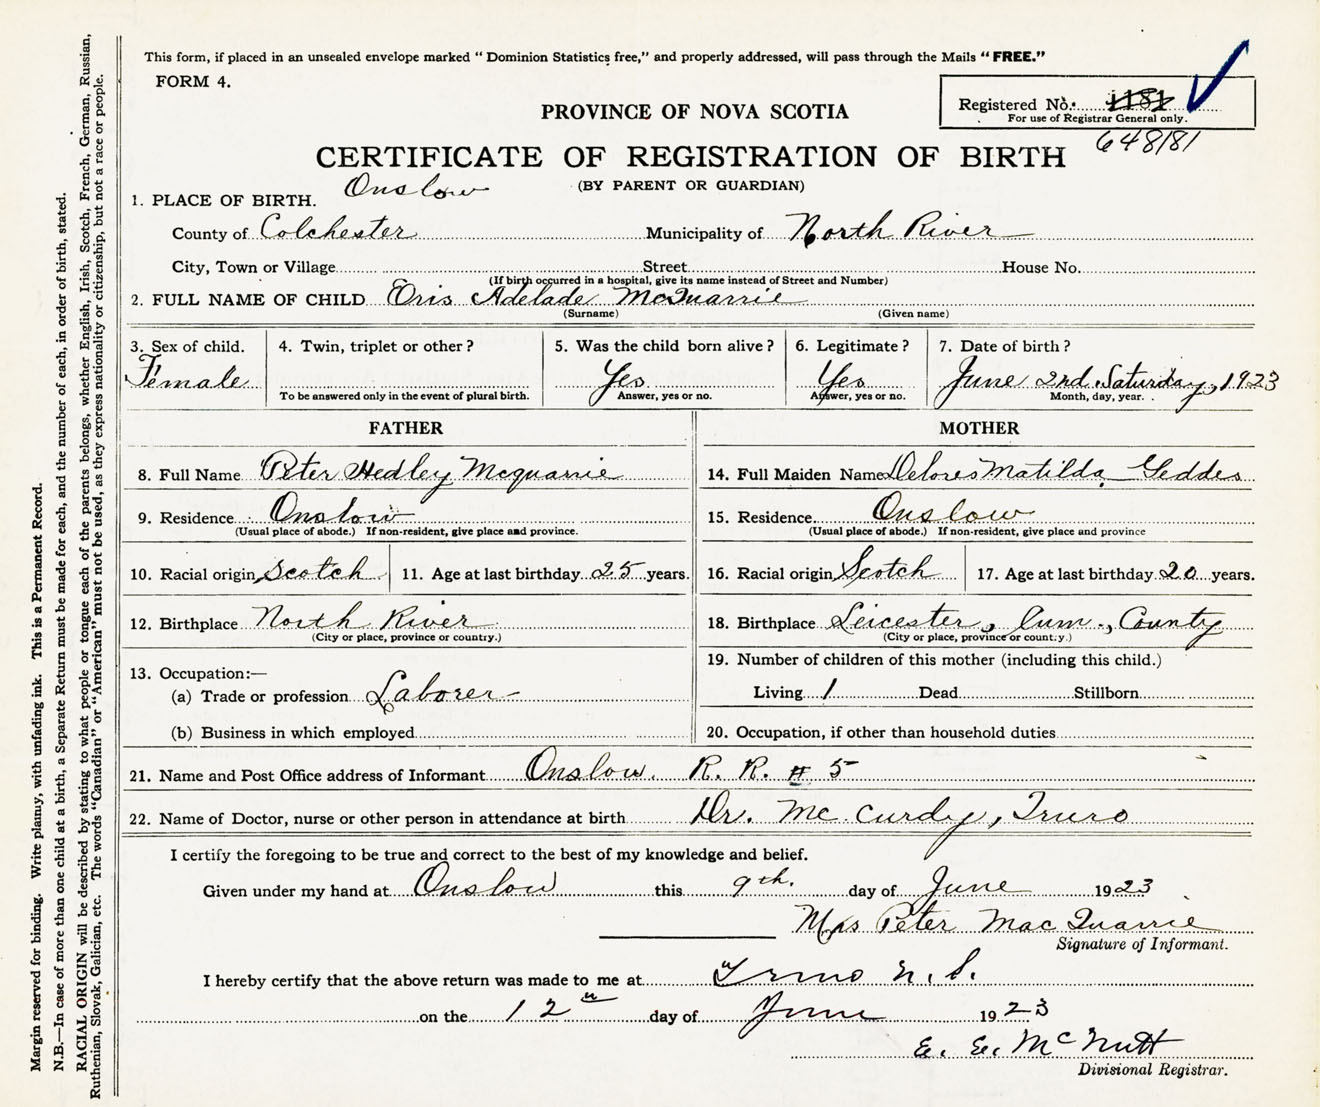 This form, if placed in an unsealed envelope marked “ Dominion Statistics free,” and properly addressed, will pass through the Mails “ FREE.”
FORM 4.
Registered No. 1181
For use of Registrar General only.
648181
PROVINCE OF NOVA SCOTIA
CERTIFICATE OF REGISTRATION OF BIRTH
(BY PARENT OR GUARDIAN)
1. PLACE OF BIRTH. Onslow
County of Colchester Municipality of North River
City, Town or Village Street House No.
(If birth occurred in a hospital, give its name instead of Street and Number)
2. FULL NAME OF CHILD Oris Adelade McQuarrie
(Surname) (Given name)
3. Sex of child. 4. Twin, triplet or other? 5. Was the child born alive? 6. Legitimate? 7. Date of birth?
Female Yes Yes June 2nd. Saturday, 1923
To be answered only in the event of plural birth. Answer, yes or no. Answer, yes or no. Month, day, year.
FATHER MOTHER
8. Full Name Peter Hedley Mcquarrie 14. Full Maiden Name Delores Matilda Geddes
9. Residence Onslow 15. Residence Onslow
(Usual place of abode.) If non-resident, give place and province. (Usual place of abode.) If non-resident, give place and province
10. Racial origin Scotch 11. Age at last birthday 25 years. 16. Racial origin Scotch 17. Age at last birthday 20 years.
12. Birthplace North River 18. Birthplace Leicester, Cum., County
(City or place, province or country.) (City or place, province or county.)
13. Occupation:— 19. Number of children of this mother (including this child.)
(a) Trade or profession Laborer Living 1 Dead Stillborn
(b) Business in which employed 20. Occupation, if other than household duties
21. Name and Post Office address of Informant Onslow. R. R. # 5
22. Name of Doctor, nurse or other person in attendance at birth Dr. McCurdy, Truro
I certify the foregoing to be true and correct to the best of my knowledge and belief.
Given under my hand at Onslow this 9th. day of June 1923
Mrs Peter MacQuarrie
Signature of Informant.
I hereby certify that the above return was made to me at Truro N. S.
on the 12th day of June 1923
E. E. McNutt
Divisional Registrar.
Margin reserved for binding. Write plainly, with unfading ink. This is a Permanent Record.
N.B.—In case of more than one child at a birth, a Separate Return must be made for each, and the number of each, in order of birth, stated.
RACIAL ORIGIN will be described by stating to what people or tongue each of the parents belongs, whether English, Irish, Scotch, French, German, Russian,
Ruthenian, Slovak, Galician, etc. The words “Canadian” or “American” must not be used, as they express nationality or citizenship, but not a race or people.